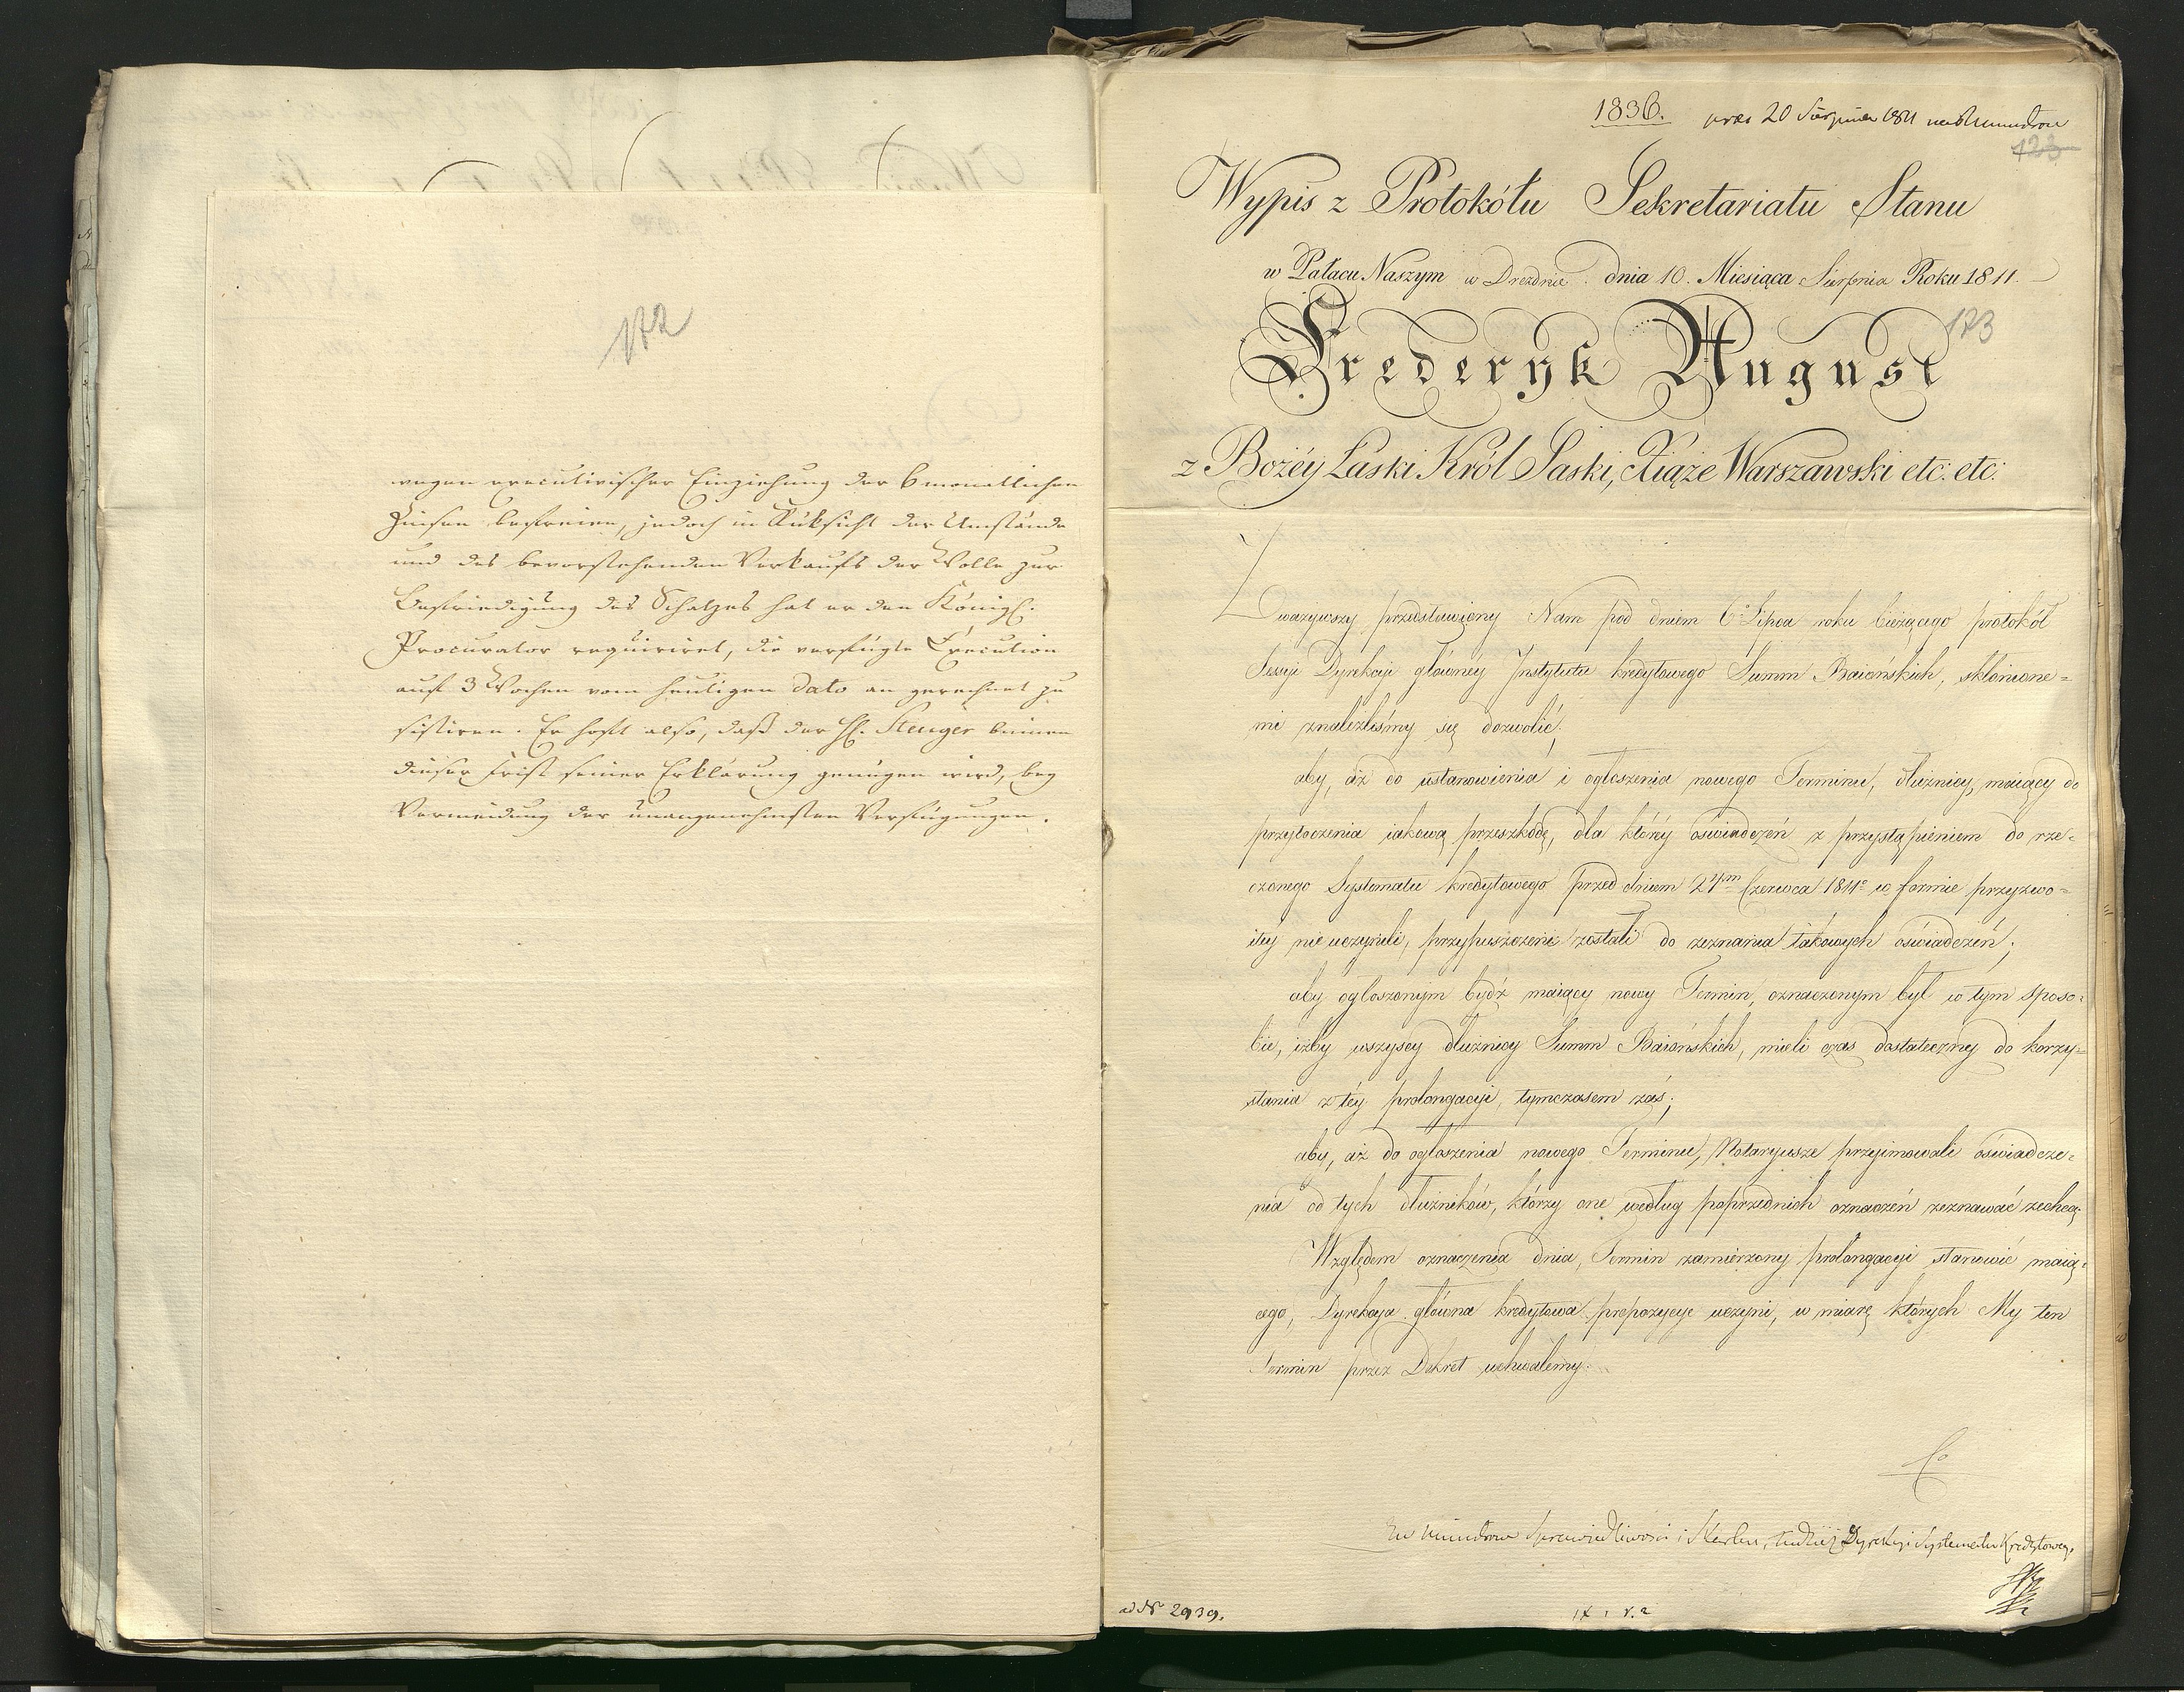 172
wegen executivischer Einziehung der 6 monatlichen
Zinsen befreien, jedoch in Rüksicht der Umstände
und des bevorstehenden Verkaufs der Wolle zur
Befriedigung des Schatzes hat er den Königl.
Procurator requiriret, die verfügte Execution
auf 3 Wochen vom heutigen dato an gerechnet zu
sistiren. Er hoft also, daß der H. Steuger binnen
dieser Frist seiner Erklärung genügen wird, bey
Vermeidung der unangenehmsten Verfügungen.
1836. 20 Sierpnia 1811
123
Wypis z Protokółu Sekretariatu Stanu
w Pałacu Naszym w Dreźdnie. dnia 10. Miesiąca Sierpnia Roku 1811.
173
Frederyk August
z Bożéy Łaski Król Saski, Xiąże Warszawski etc: etc:
Zważywszy przedstawiony Nam pod dniem 6° Lipca roku bieżącego protokół
Sessyi Dyrekcyi główney Instytutu kredytowego Summ Baiońskich, skłonione=
mi znaleźliśmy się dozwolić;
aby, aż do ustanowienia i ogłoszenia nowego Terminu, dłużnicy, maiący do
przytoczenia iakową przeszkodę, dla któréy oświadczeń z przystąpieniem do rze=
czonego Systematu kredytowego przed dniem 24m Czerwca 1811° w formie przyzwo=
itéy nie uczynili, przypuszczeni zostali do zeznania takowych oświadczeń;
aby ogłoszonym bydź maiący nowy Termin, oznaczonym był w tym sposo=
bie, iżby wszyscy dłużnicy Summ Baiońskich, mieli czas dostateczny do korzy=
stania z téy prolongacyi, tymczasem zaś;
aby, aż do ogłoszenia nowego Terminu, Notaryusze przyimowali oświadcze=
nia od tych dłużników, którzy one według poprzednich oznaczeń zeznawać zechcą.
Względem oznaczenia dnia, Termin zamierzonéy prolongacyi stanowić maią=
cego, Dyrekcya główna kredytowa propozycye uczyni, w miarę których My ten
Termin przez Dekret uchwalemy.
Do Ministrów Sprawiedliwości i Skarbu, tudzież Dyrekcyi Systematu Kredytowego
ad № 2939.